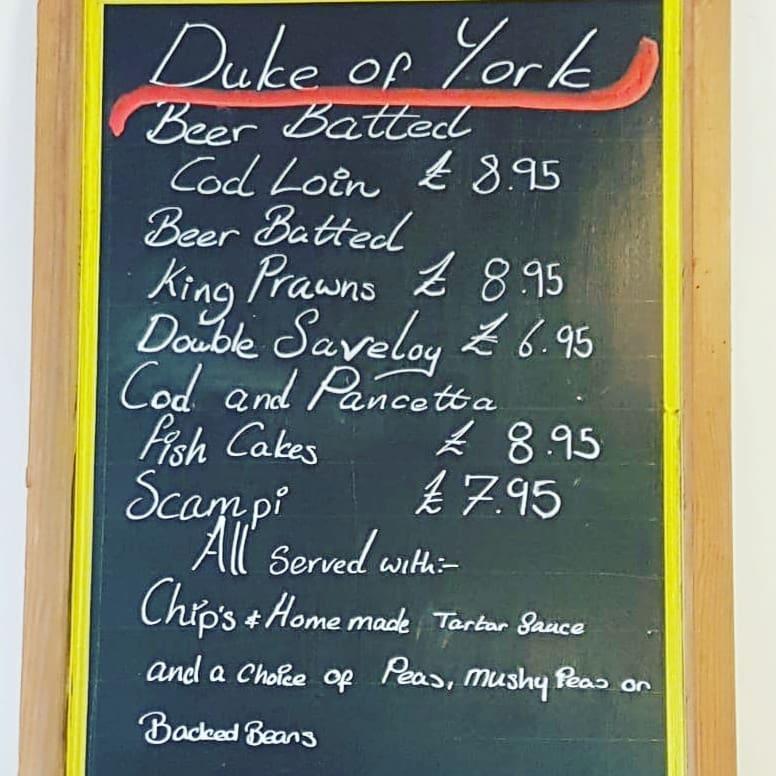 Duke of York
Beer Batted
Cod Loin £ 8.95
Beer Batted
King Prawns £ 8.95
Double Saveloy £ 6.95
Cod and Pancetta
Fish Cakes £ 8.95
Scampi £7.95
All Served with:-
Chip's & Home made Tartar Sauce
and a Choice of Peas, Mushy Peas or
Backed Beans